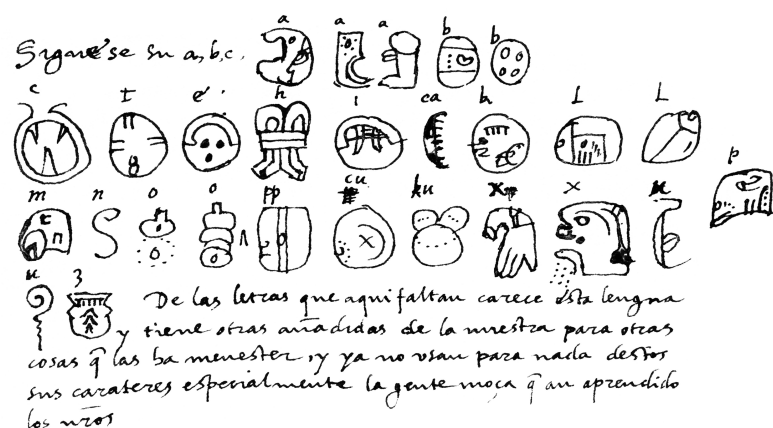 Siguese su a, b, c.
a a a b b
c t é h i ca k l l
m n o o pp cu ku x x u p
u z
De las letras que aqui faltan carece esta lengua
y tiene otras añadidas de la nuestra para otras
cosas q̃ las ha menester, y ya no usan para nada destos
sus carateres especialmente la gente moça q̃ an aprendido
los nr̃os